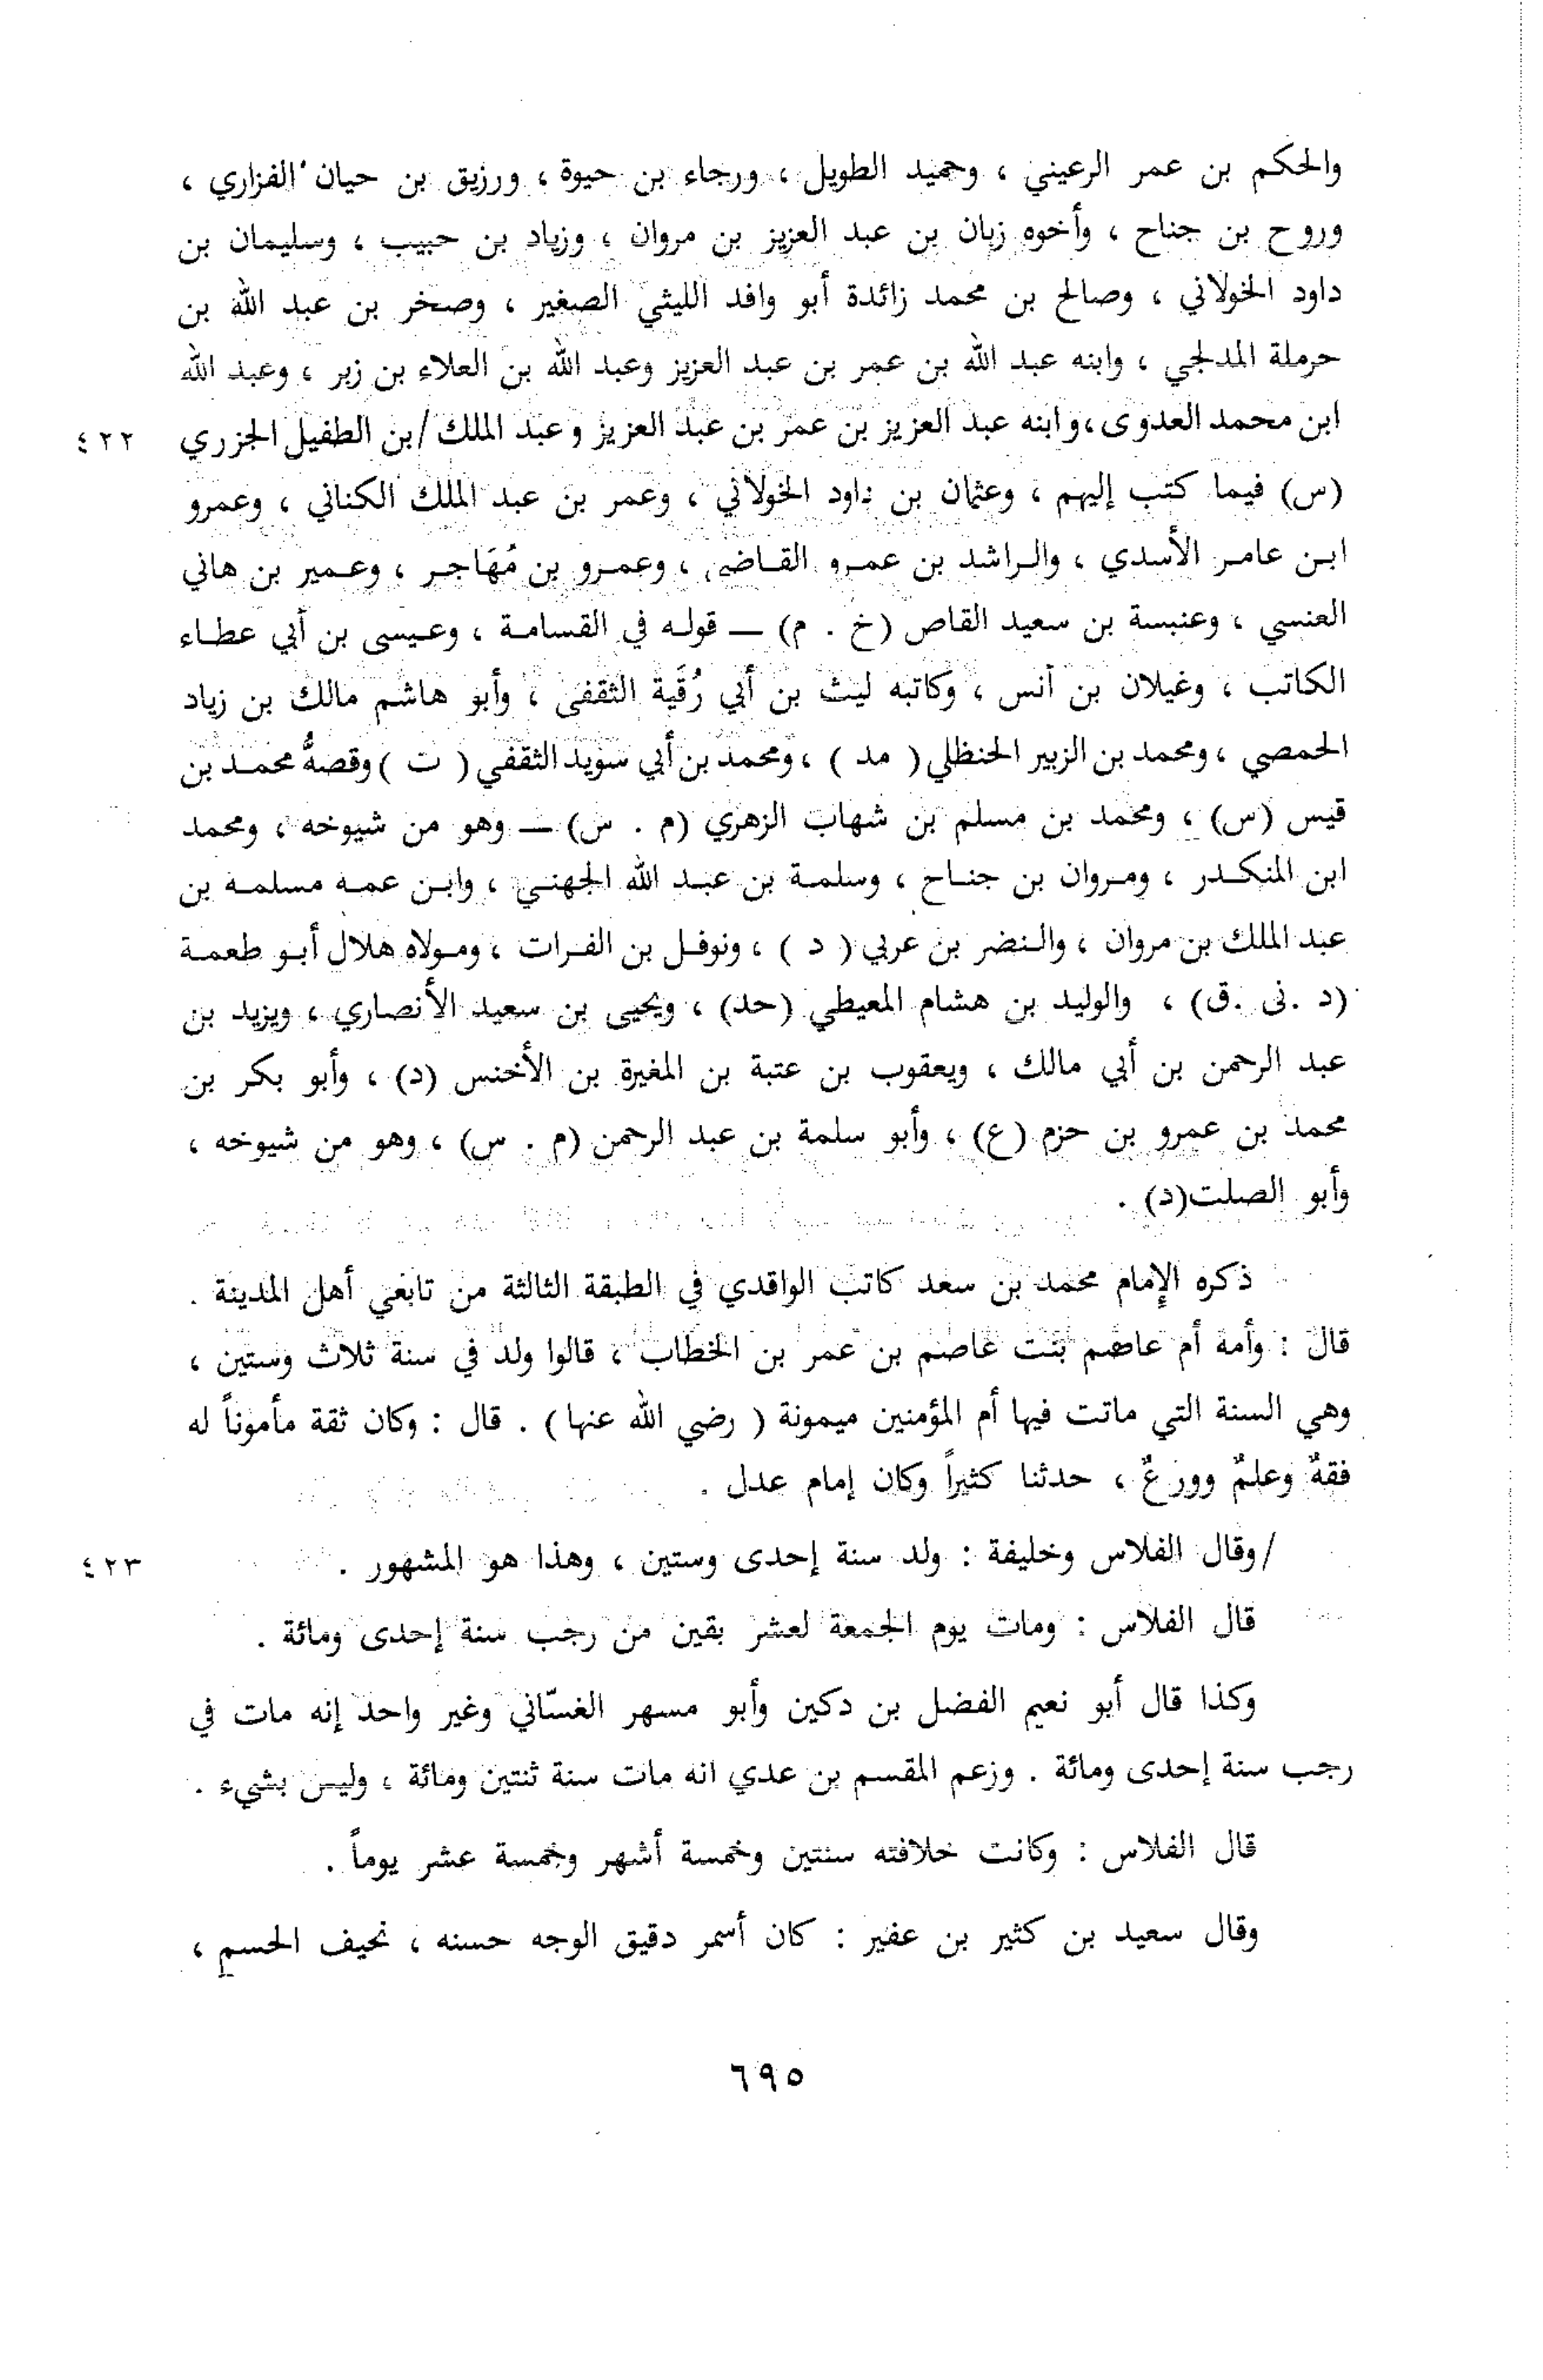 والحكم بن عمر الرعيني ، وحميد الطويل ، ورجاء بن حيوة ، ورزيق بن حيان الفزاري ،
وروح بن جناح ، وأخوه زبان بن عبد العزيز بن مروان ، وزياد بن حبيب ، وسليمان بن
داود الخولاني ، وصالح بن محمد زائدة أبو وافد الليثي الصغير ، وصخر بن عبد الله بن
حرملة المدلجي ، وابنه عبد الله بن عمر بن عبد العزيز وعبد الله بن العلاء بن زبر ، وعبد الله
ابن محمد العدوى ، وابنه عبد العزيز بن عمر بن عبد العزيز وعبد الملك /بن الطفيل الجزري ٤٢٢
(س) فيما كتب إليهم ، وعثمان بن داود الخولاني ، وعمر بن عبد الملك الكناني ، وعمرو
ابن عامر الأسدي ، والراشد بن عمرو القاضي ، وعمرو بن مُهَاجر ، وعمير بن هاني
العنسي ، وعنبسة بن سعيد القاص (خ . م) — قوله في القسامة ، وعيسى بن أبي عطاء
الكاتب ، وغيلان بن أنس ، وكاتبه ليث بن أبي رُقَية الثقفى ، وأبو هاشم مالك بن زياد
الحمصي ، ومحمد بن الزبير الحنظلي ( مد ) ، ومحمد بن أبي سويد الثقفي ( ت ) وقصةُ محمد بن
قيس (س) ، ومحمد بن مسلم بن شهاب الزهري (م . س) — وهو من شيوخه ، ومحمد
ابن المنكدر ، ومروان بن جناح ، وسلمة بن عبد الله الجهني ، وابن عمه مسلمه بن
عبد الملك بن مروان ، والنضر بن عربي ( د ) ، ونوفل بن الفرات ، ومولاه هلال أبو طعمة
(د .نى .ق) ، والوليد بن هشام المعيطي (حد) ، ويحيى بن سعيد الأنصاري ، ويزيد بن
عبد الرحمن بن أبي مالك ، ويعقوب بن عتبة بن المغيرة بن الأخنس (د) ، وأبو بكر بن
محمد بن عمرو بن حزم (ع) ، وأبو سلمة بن عبد الرحمن (م . س) ، وهو من شيوخه ،
وأبو الصلت(د) .
ذكره الإمام محمد بن سعد كاتب الواقدي في الطبقة الثالثة من تابعي أهل المدينة .
قال : وأمه أم عاصم بنت عاصم بن عمر بن الخطاب ، قالوا ولد في سنة ثلاث وستين ،
وهي السنة التي ماتت فيها أم المؤمنين ميمونة ( رضي الله عنها ) . قال : وكان ثقة مأموناً له
فقهٌ وعلمٌ وورعٌ ، حدثنا كثيراً وكان إمام عدل .
/وقال الفلاس وخليفة : ولد سنة إحدى وستين ، وهذا هو المشهور . ٤٢٣
قال الفلاس : ومات يوم الجمعة لعشر بقين من رجب سنة إحدى ومائة .
وكذا قال أبو نعيم الفضل بن دكين وأبو مسهر الغسّاني وغير واحد إنه مات في
رجب سنة إحدى ومائة . وزعم المقسم بن عدي انه مات سنة ثنتين ومائة ، وليس بشيء .
قال الفلاس : وكانت خلافته سنتين وخمسة أشهر وخمسة عشر يوماً .
وقال سعيد بن كثير بن عفير : كان أسمر دقيق الوجه حسنه ، نحيف الحسم ،
٦٩٥